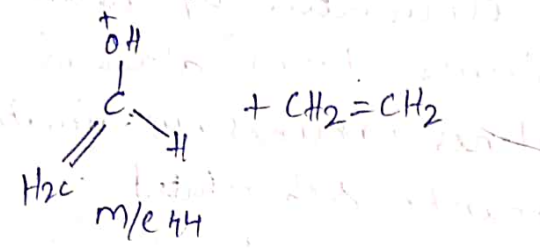 +
OH
C
H
H2C
+ CH2=CH2
m/e 44